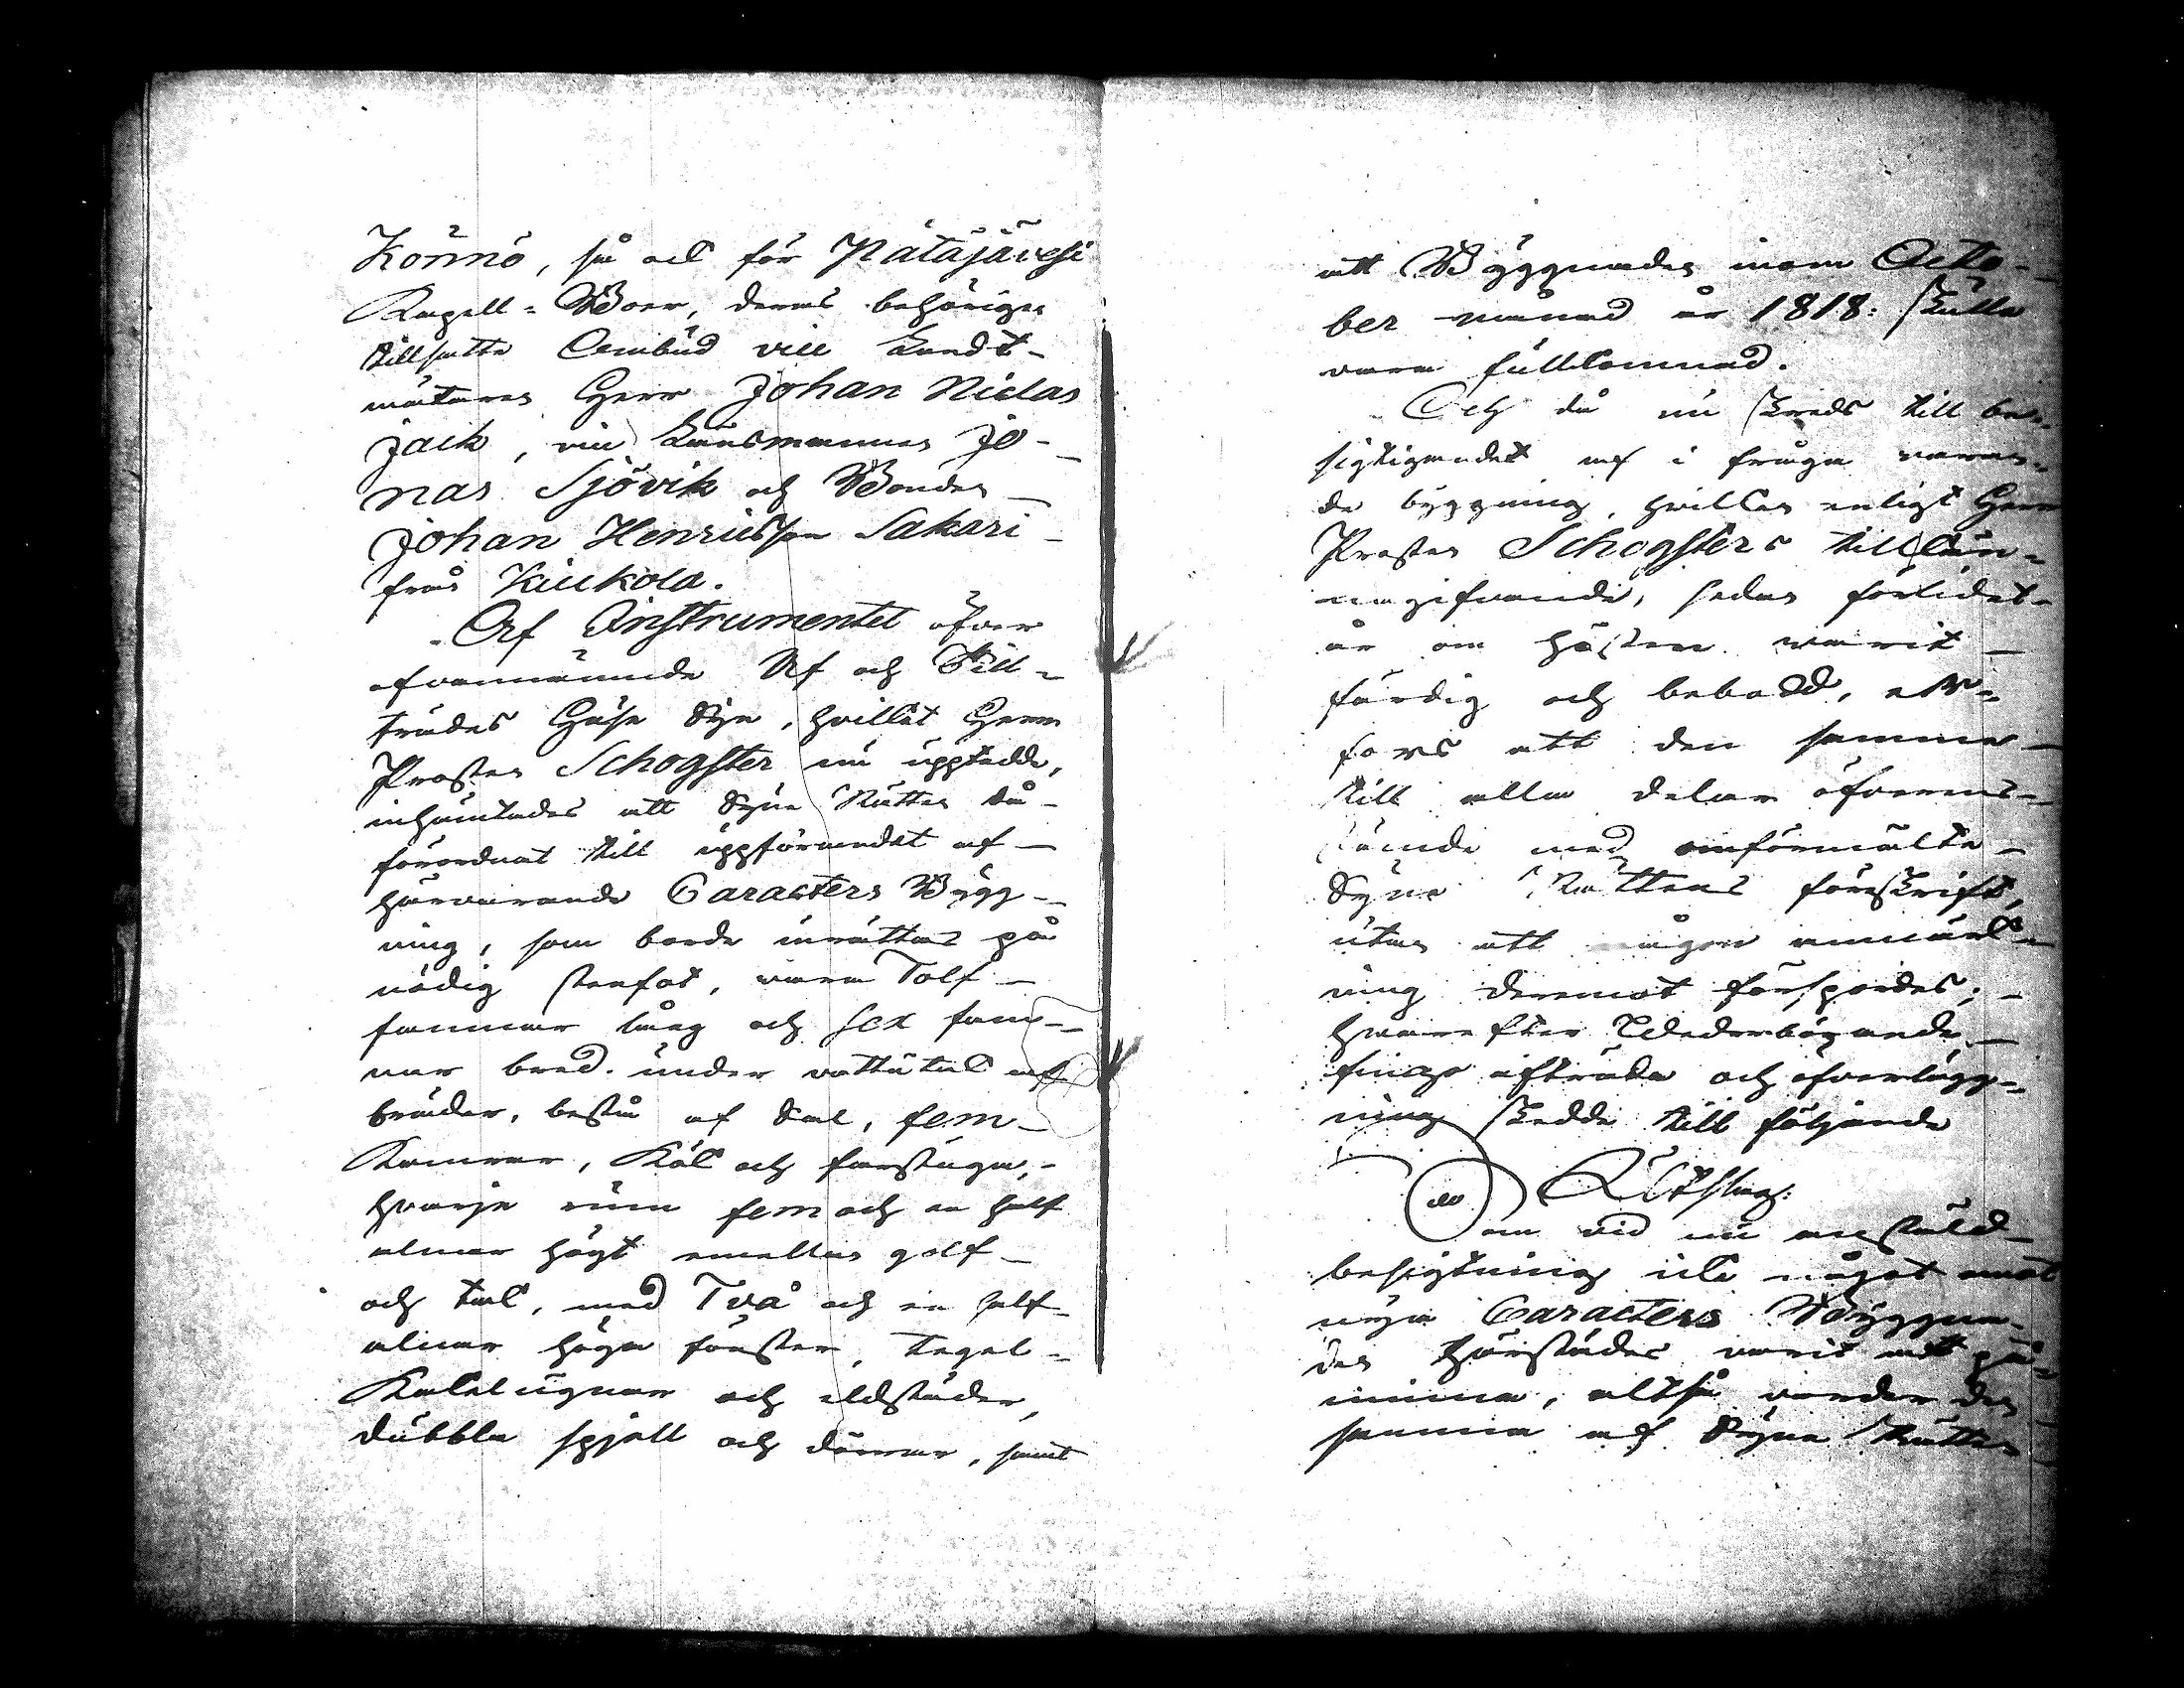 Könnö, så ock för Pätäjävesi
Kapell-Boer, deras behörigen
tillsatte Ombud vice Landt-
mätaren Herr Johan Niclas
Jack, vice Länsmannen Jo-
nas Sjövik och Bonden
Johan Henricsson Sakari
från Kuukola.
Af Instrumentet öfver
ofvannämnde Af och Till-
trädes Huse Syn, hvilket Herr
Prosten Schogster nu uppteddе,
inhämtades att Syne Rätten då
förordnat till uppförandet af
härvarande Caracters Bygg-
ning, som borde inrättas på
nödig stenfot, vara Tolf
famnar lång och Sex fam-
nar bred under vattutak af
bräder, bestå af Sal, fem
Kamrar, Kök och farstuga,
hvarje rum fem och en half
alnar högt emellan golf
och tak, med Två och en half
alnar höga fönster, tegel-
Kakelugnar och eldstäder,
dubbla spjell och dörrar, samt
att Byggnaden inom Octo-
ber månad år 1818: skulle
vara fullkomnad.
Och då nu skreds till be-
sigtigandet af i fråga varan-
de byggning, hvilken enligt Herr
Prosten Schogsters tillkän-
nagifvande, sedan förlidet
år om hösten warit
färdig och bebodd, be-
fans att den samma
till alla delar öfverens-
stämde med omförmälte
Syne Rättens föreskrift,
utan att någon anmärk-
ning deremot förspordes;
hwarefter Wederbörande
fingo afträda och öfverlägg-
ning skedde till följande
Utslag:
Som vid nu anstäld
besigtning icke något emot
nya Caracters Byggna-
den härstädes varit att på-
minna, altså varder den
samma af Syne Rätten